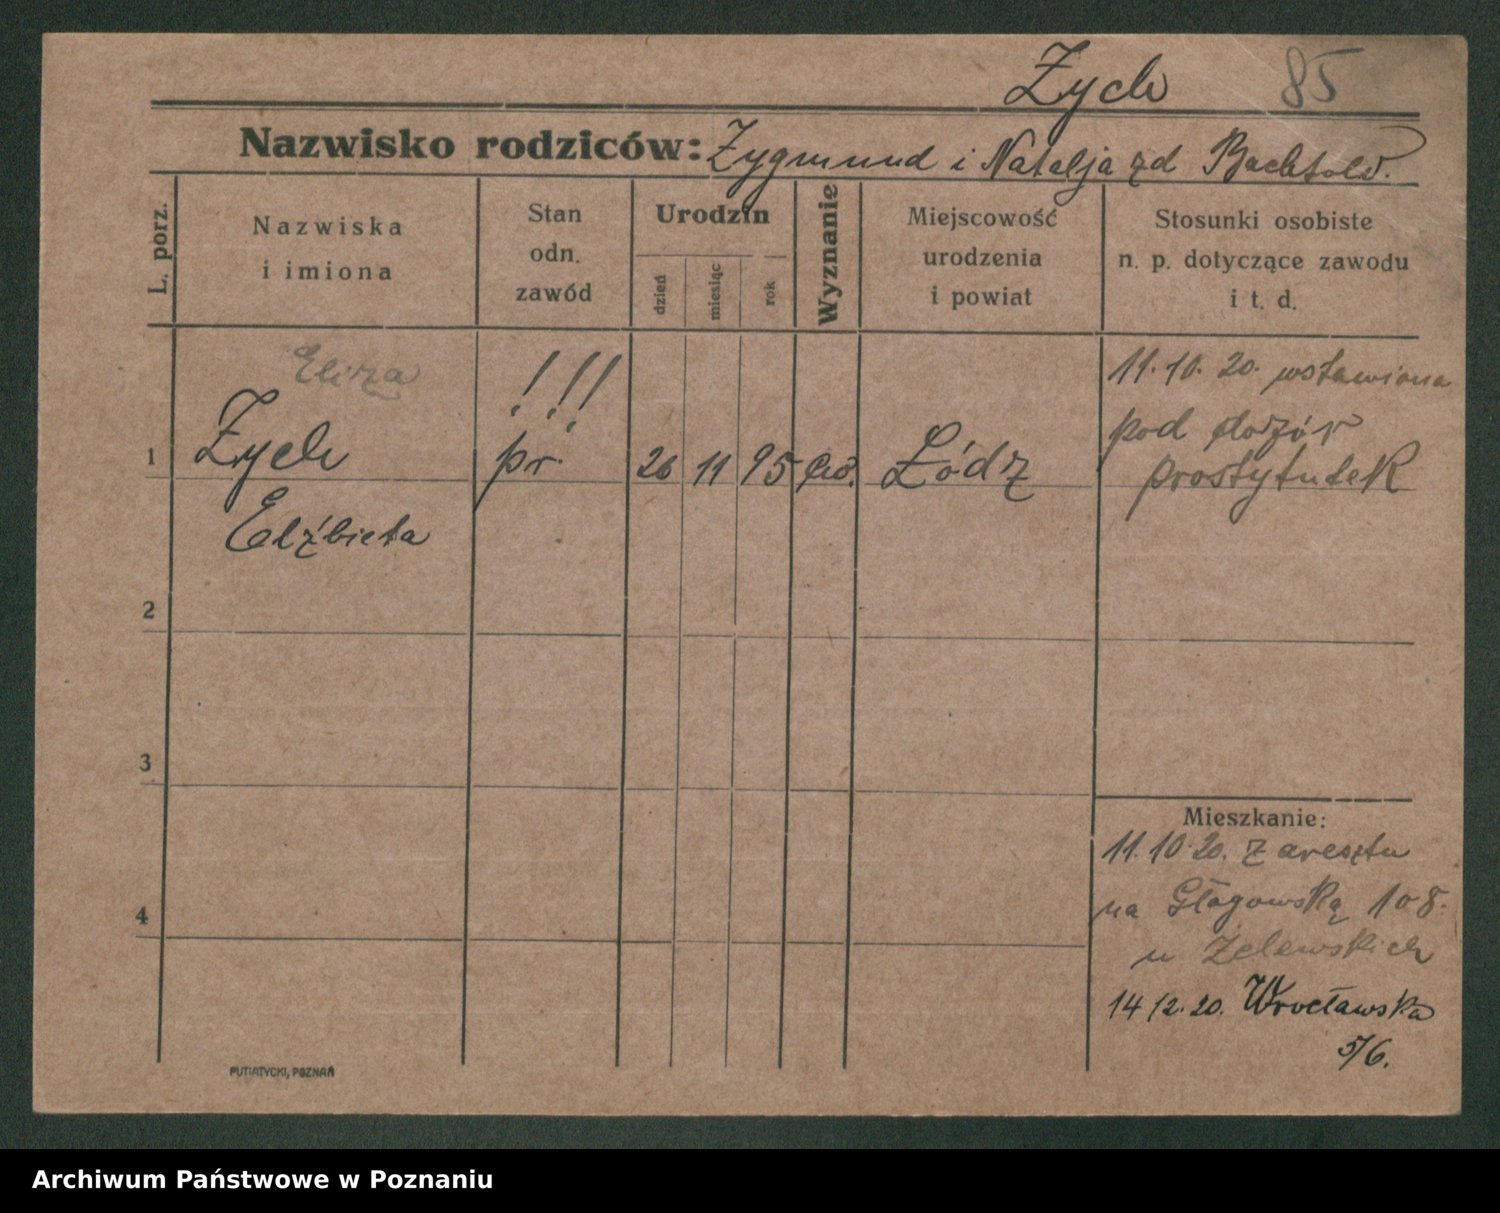 Zych 85
Nazwisko rodziców: Zygmund i Natalja zd Bachtold.
L. porz.
Nazwiska
i imiona
Stan
odn.
zawód
Urodzin
dzień
miesiąc
rok
Wyznanie
Miejscowość
urodzenia
i powiat
Stosunki osobiste
n. p. dotyczące zawodu
i t. d.
Eliza
!!!
11. 10. 20. wstawiona
pod dozór
1 Zych pr. 26 11 95 Łódz prostytutek
Elżbieta
2
3
Mieszkanie:
11.10.20. z aresztu
4 na Głogowską 108.
u Zelewskich
14 12. 20. Wrocławska
5/6.
PUTIATYCKI, POZNAŃ
Archiwum Państwowe w Poznaniu